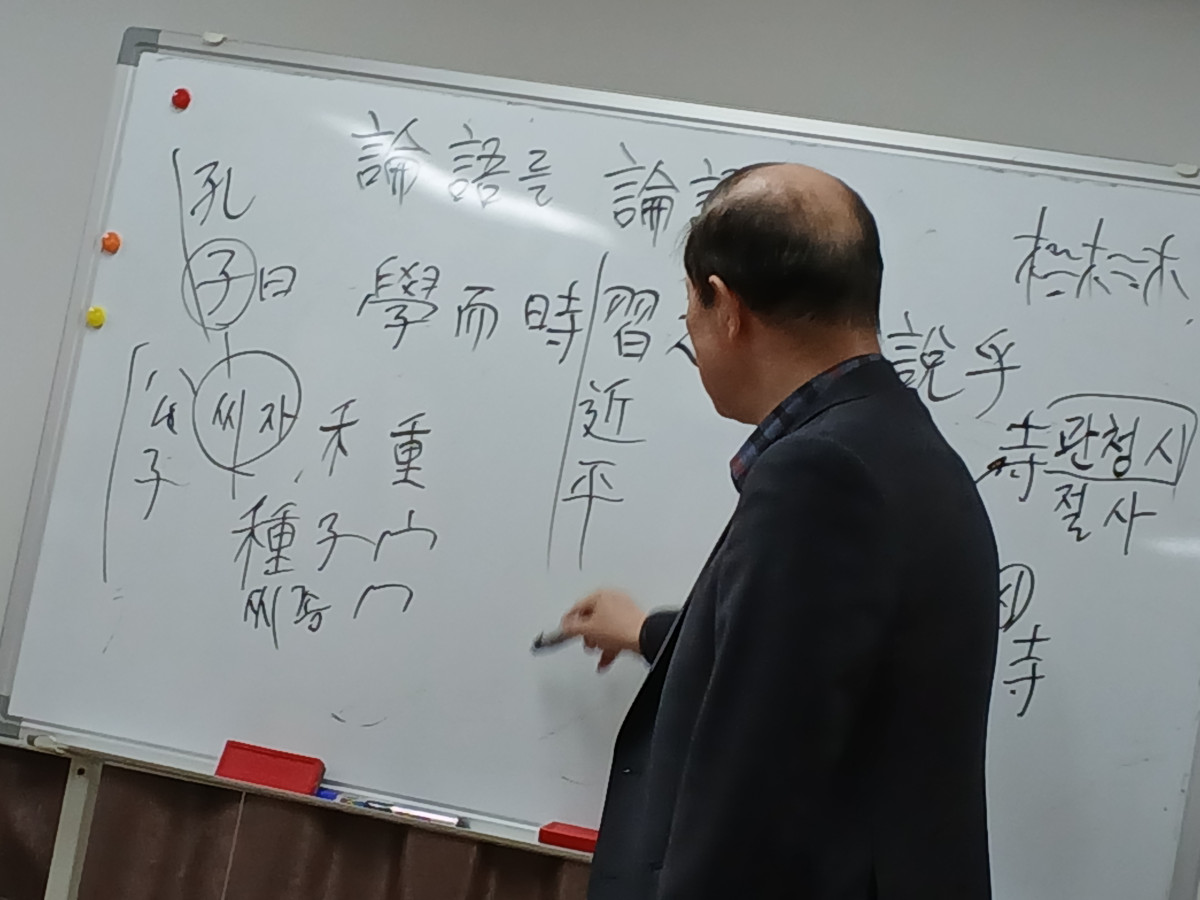 論語를 論
孔
子曰 學而時習
說乎
公 씨자 禾 重
子
近
平
寺 관청시
절사
種子
寺